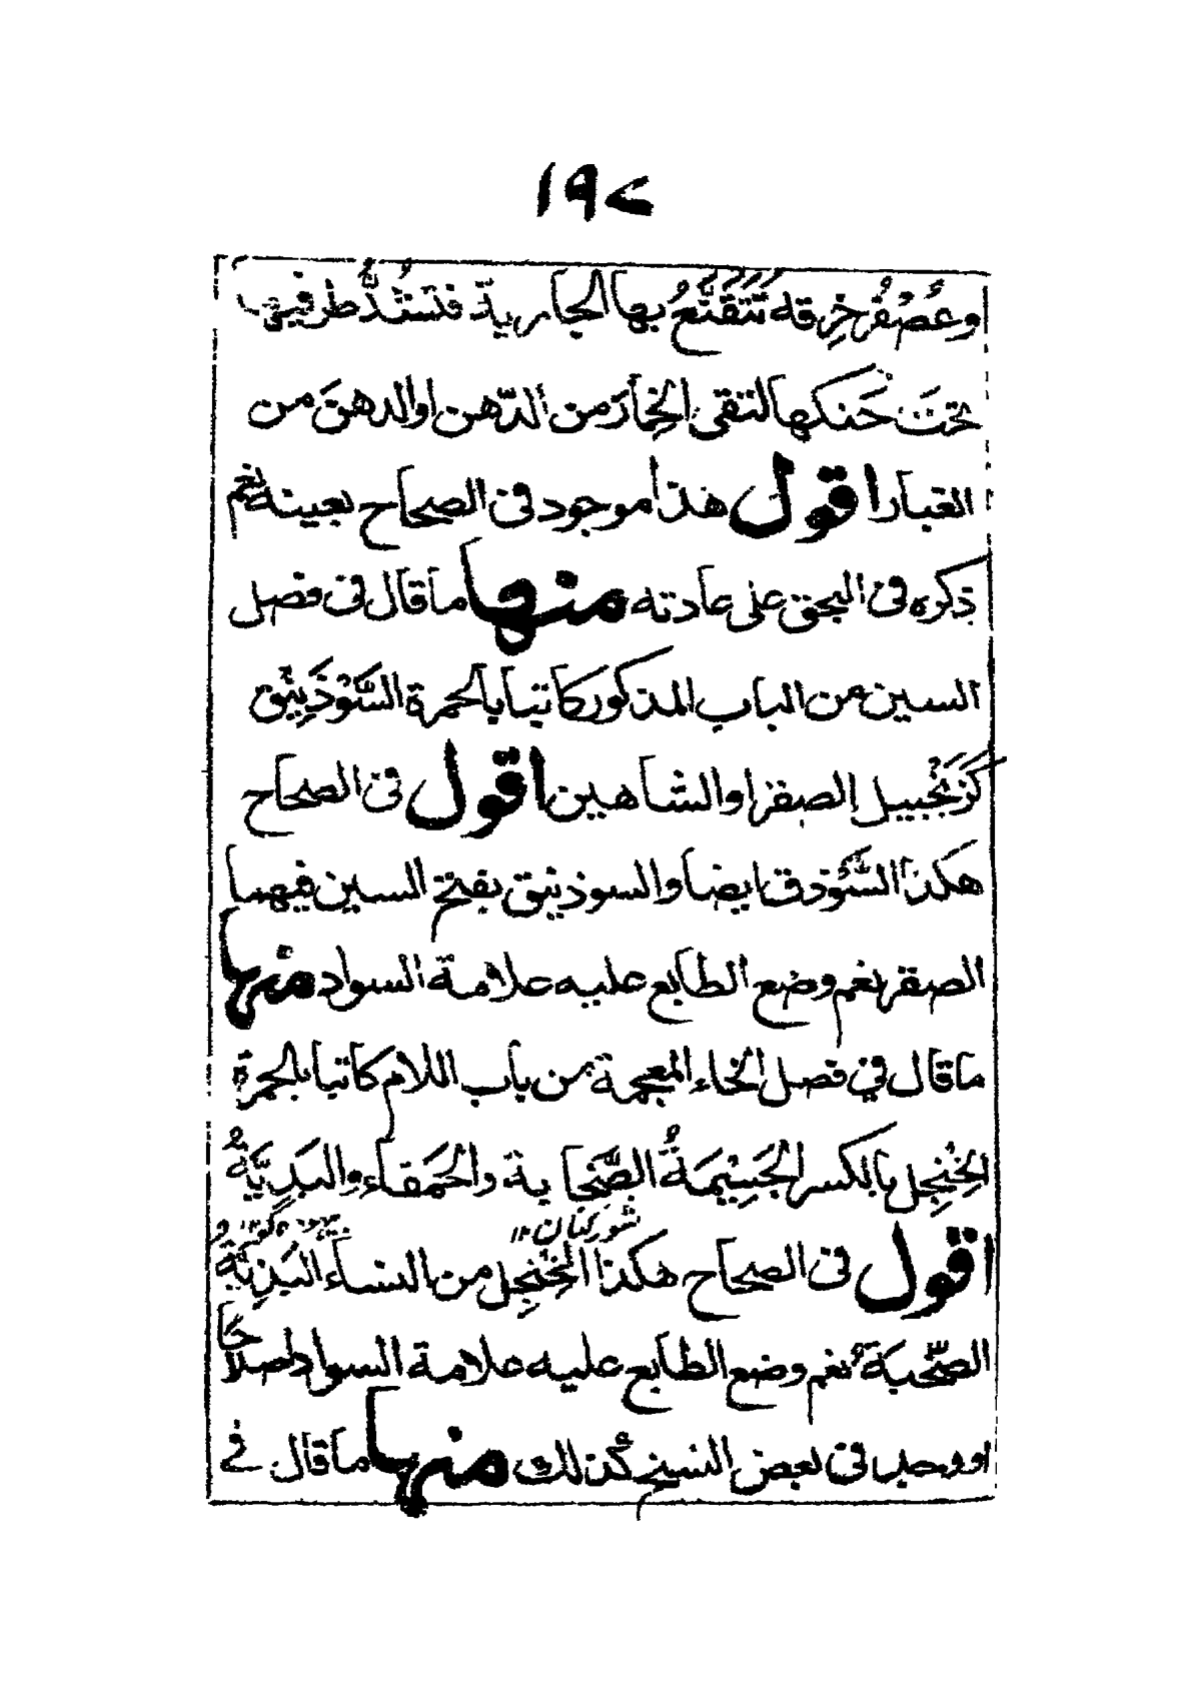 ١٩٧
وعُصْفُر خِرقه تَتَقَنَّعُ بها الجارية فتَشُدُّ طرفيها
تحتَ حَنَكها لتقى الخِمارَ من الدّهن او الدهنَ من
الغبار اقول هذا موجود فى الصحاح بعينه نعم
ذكره فى البجق على عادته منها ما قال فى فصل
السين من الباب المذكور كاتبا بالحمرة السَّوْذَنِيق
كزنجبيل الصقر او الشاهين اقول فى الصحاح
هكذا السَّوْذق ايضا والسوذنيق بفتح السين فيهما
الصقر نعم وضع الطابع عليه علامة السواد منها
ما قال في فصل الخاء المعجمة من باب اللام كاتبا بالحمرة
الخِنْجِل بالكسر الجَسِيْمَةُ الصَّخابة والحَمقاء والبَذِيَّةُ
اقول فى الصحاح هكذا الخِنْجِل من النساء البَذِيَّةُ
الصخّبة نعم وضع الطابع عليه علامة السواد اصلاحًا
او وجد فى بعض النسخ كذلك منها ما قال في